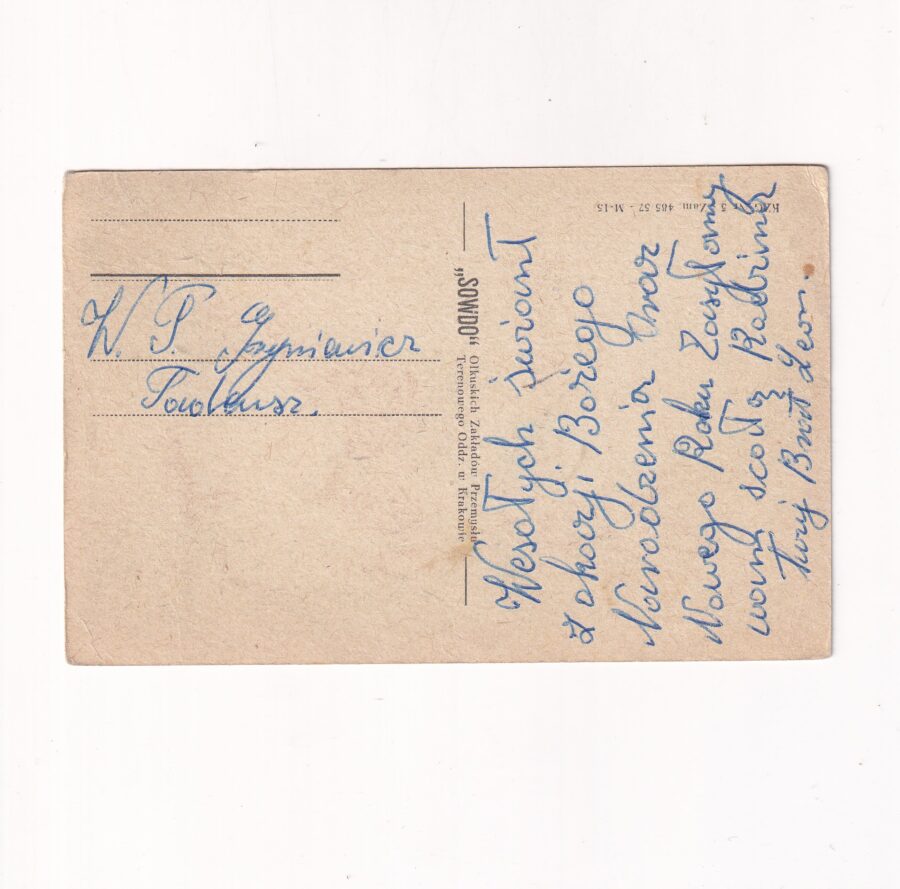 W. P.
Tadeusz.
"SOWDO" Olkuskich Zakładów Przemysłu
Terenowego Oddz. w Krakowie
Zam. 485 57 - M-15
Wesołych świont
z okazji Bożego
Narodzenia Oraz
Nowego Roku Zasyłamy
wam scołą Radziną
Twój Brat Leon.